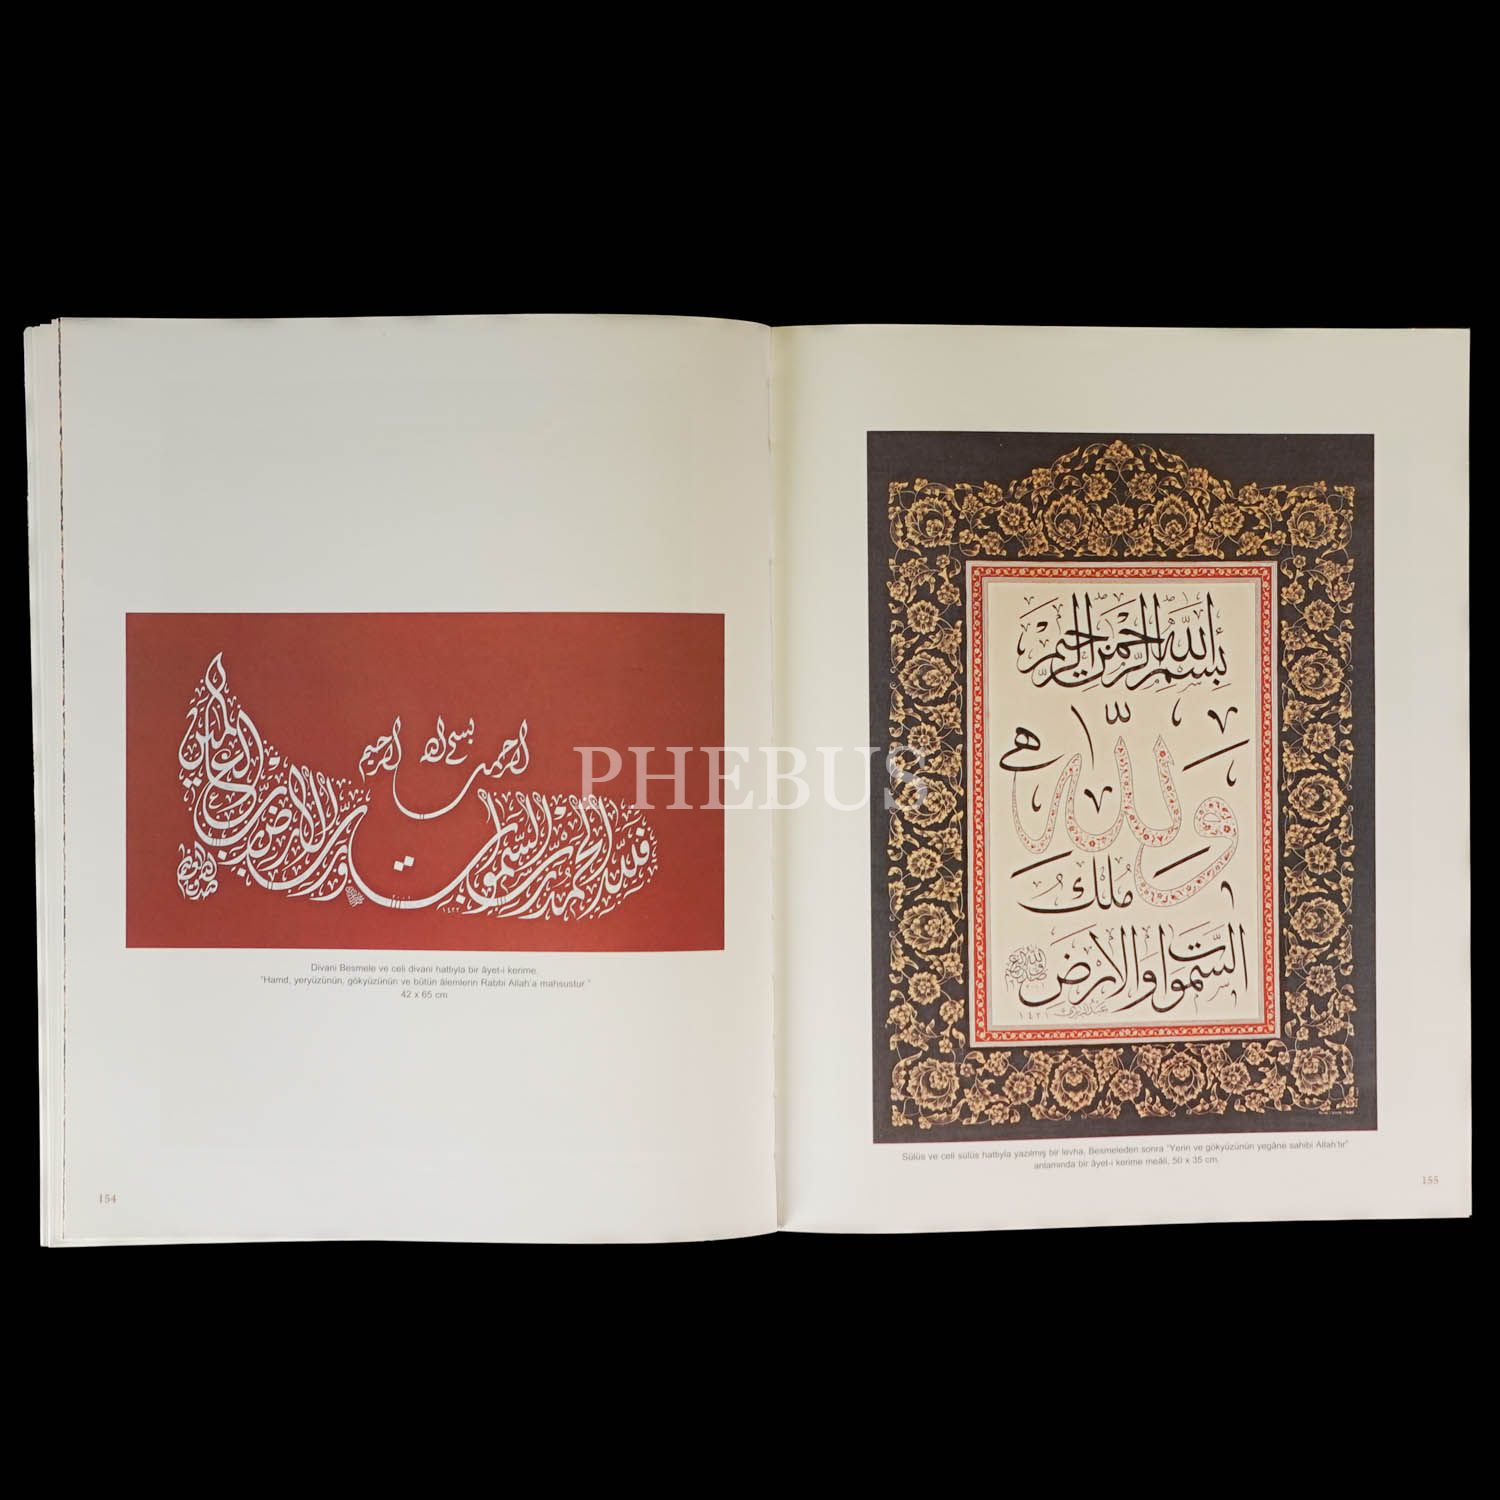 بسم الله
الرحمن الرحيم
فلله الحمد رب السموات ورب الارض رب العالمين
١٤٢٢
Divani Besmele ve celi divani hattıyla bir âyet-i kerime.
"Hamd, yeryüzünün, gökyüzünün ve bütün âlemlerin Rabbi Allah'a mahsustur."
42 x 65 cm
154
PHEBUS
بسم الله الرحمن الرحيم
ولله
ملك
السموات والارض
١٤٢١
Sülüs ve celi sülüs hattıyla yazılmış bir levha. Besmeleden sonra "Yerin ve gökyüzünün yegâne sahibi Allah'tır"
anlamında bir âyet-i kerime meâli, 50 x 35 cm.
155